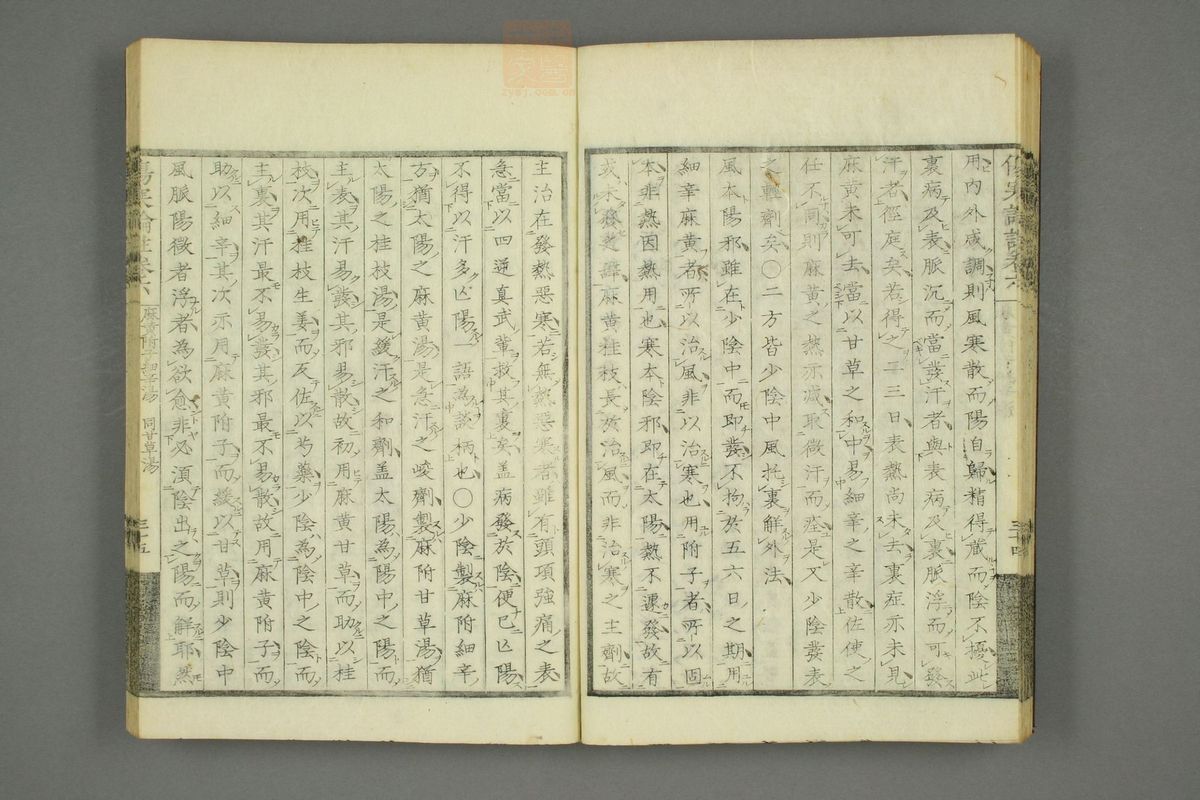 用內外咸調則風寒散而陽自歸精得藏而陰不擾此
裏病及表脈沉而當發汗者與表病及裏脈浮而可發
汗者徑庭矣若得之二三日表熱尚未去裏症亦未見
麻黃未可去當以甘草之和中易細辛之辛散佐使之
任不同則麻黃之熱亦減取微汗而痊是又少陰發表
之輕劑矣〇二方皆少陰中風托裏解外法
風本陽邪雖在少陰中而即發不拘於五六日之期用
細辛麻黃者所以治風非以治寒也用附子者所以固
本非熱因熱用也寒本陰邪即在太陽熱不遽發故有
或未發之辭麻黃桂枝長於治風而非治寒之主劑故
三十四
主治在發熱惡寒若無熱惡寒者雖有頭項強痛之表
急當以四逆真武輩救其裏矣盖病發於陰便已亡陽
不得以汗多亡陽一語為談柄也〇少陰製麻附細辛
方猶太陽之麻黃湯是急汗之峻劑製麻附甘草湯猶
太陽之桂枝湯是緩汗之和劑盖太陽為陽中之陽而
主表其汗易發其邪易散故初用麻黃甘草而助以桂
枝次用桂枝生姜而反佐以芍藥少陰為陰中之陰而
主裏其汗最不易發其邪最不易散故用麻黃附子而
助以細辛其次亦用麻黃附子而緩以甘草則少陰中
風脈陽微者浮者為欲愈非必須陰出之陽而解耶然
麻黃附子細辛湯 同甘草湯
三十五
zysj.com.cn